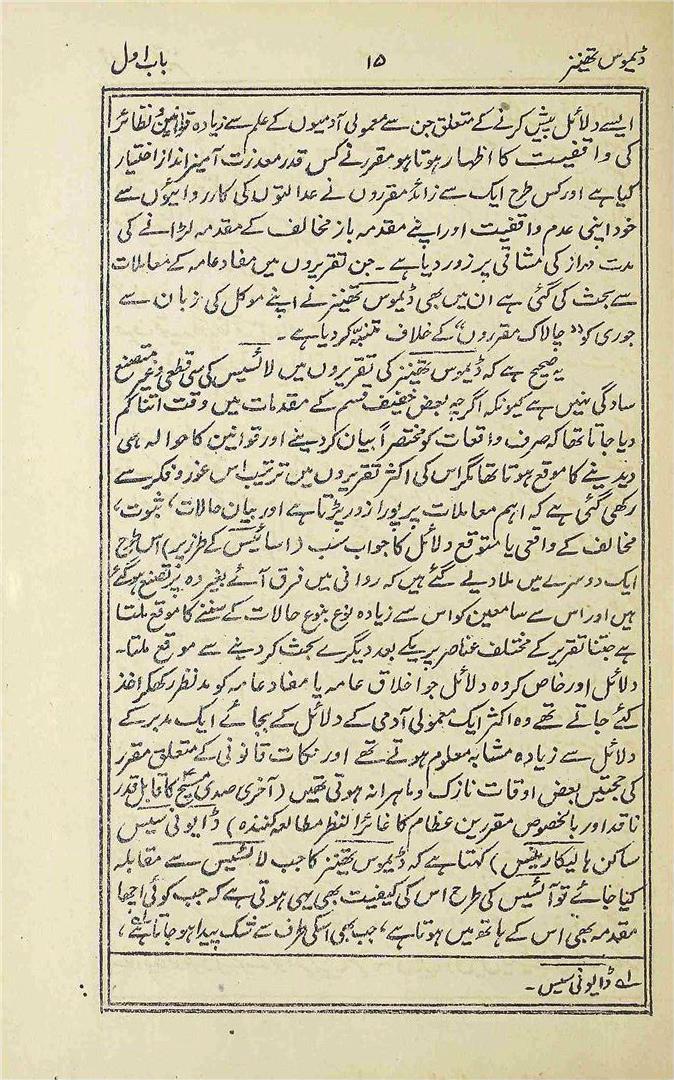 ڈیموس تھینز ۱۵ باب اول
ایسے دلائل پیش کرنے کے متعلق جن سے معمولی آدمیوں کے علم سے زیادہ قوانین و نظائر
کی واقفیت کا اظہار ہوتا ہو مقرر نے کس قدر معذرت آمیز انداز اختیار
کیا ہے اور کس طرح ایک سے زائد مقرروں نے عدالتوں کی کارروائیوں سے
خود اپنی عدم واقفیت اور اپنے مقدمہ باز مخالف کے مقدمہ لڑانے کی
مدت دراز کی مشاقی پر زور دیا ہے۔ جن تقریروں میں مفاد عامہ کے معاملات
سے بحث کی گئی ہے ان میں بھی ڈیموس تھینز نے اپنے موکل کی زبان سے
جوری کو ”چالاک مقرروں“ کے خلاف متنبہ کر دیا ہے۔
یہ صحیح ہے کہ ڈیموس تھینز کی تقریروں میں لائسیس کی سی قطعی و غیر متصنع
سادگی نہیں ہے کیونکہ اگرچہ بعض خفیف قسم کے مقدمات میں وقت اتنا کم
دیا جاتا تھا کہ صرف واقعات کو مختصراً بیان کر دینے اور قوانین کا حوالہ ہی
دیدینے کا موقع ہوتا تھا مگر اس کی اکثر تقریروں میں ترتیب اس غور و فکر سے
رکھی گئی ہے کہ اہم معاملات پر پورا زور پڑتا ہے اور بیان حالات، ثبوت،
مخالف کے واقعی یا متوقع دلائل کا جواب سب (اسائیس کے طرز پر) اس طرح
ایک دوسرے میں ملا دیے گئے ہیں کہ روانی میں فرق آئے بغیر وہ پرتصنع ہو گئے
ہیں اور اس سے سامعین کو اس سے زیادہ نوع بنوع حالات کے سننے کا موقع ملتا
ہے جتنا تقریر کے مختلف عناصر پر یکے بعد دیگرے بحث کر دینے سے موقع ملتا۔
دلائل اور خاص کر وہ دلائل جو اخلاق عامہ یا مفاد عامہ کو مدنظر رکھکر اخذ
کئے جاتے تھے وہ اکثر ایک معمولی آدمی کے دلائل کے بجائے ایک مدبر کے
دلائل سے زیادہ مشابہ معلوم ہوتے تھے اور نکات قانونی کے متعلق مقرر
کی حجتیں بعض اوقات نازک و ماہرانہ ہوتی تھیں (آخری صدی ق مسیح کا قابل قدر
ناقد اور بالخصوص مقررین عظام کا غائر النظر مطالعہ کنندہ) ڈایونی سیس
ساکن ہالیکارنیسس) کہتا ہے کہ ڈیموس تھینز کا جب لائسیس سے مقابلہ
کیا جائے تو آئسیس کی طرح اس کی کیفیت بھی یہی ہوتی ہے کہ جب کوئی اچھا
مقدمہ بھی اس کے ہاتھ میں ہوتا ہے، جب بھی اسکی طرف سے شک پیدا ہو جاتا ہے،
لہ ڈایونی سیس۔